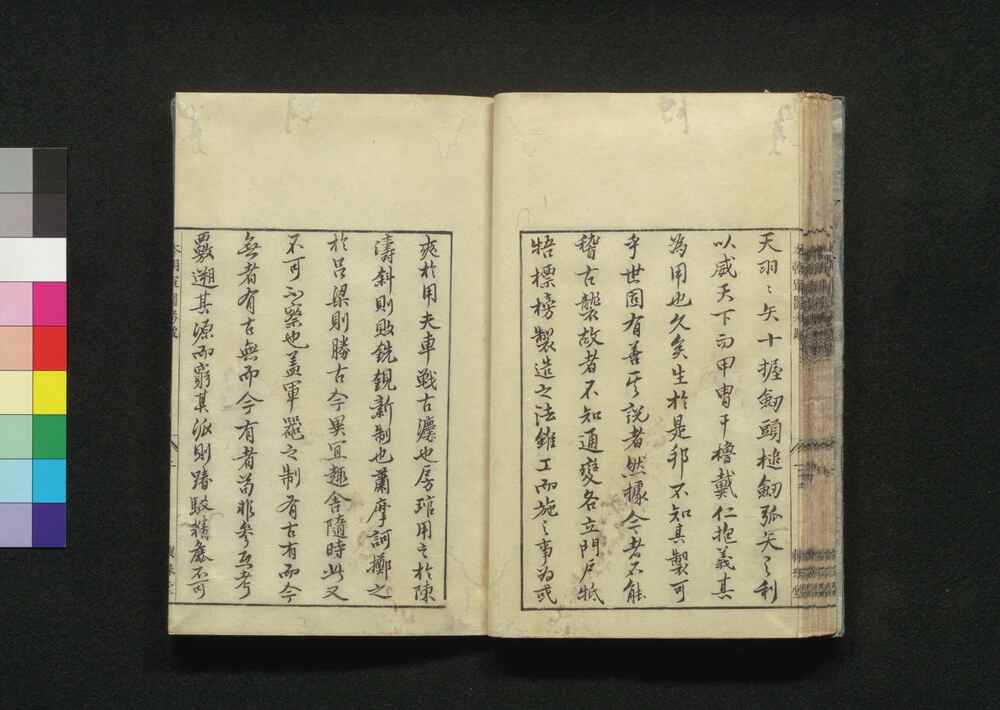 天羽〻矢十握劔頭槌劔弧矢之利
以威天下而甲冑干櫓戴仁抱義其
為用也久矣生於是邦不知其製可
乎世固有善其説者然據今者不能
稽古襲故者不知通變各立門戸牴
牾標榜製造之法錐工而施之事為或
爽於用夫車戦古灋也房琯用之於陳
濤斜則敗銑鋧新制也蕭摩訶擲之
於呂梁則勝古今異宜趣舎隨時此又
不可不察也盖軍器之制有古有而今
無者有古無而今有者苟非參互考
覈遡其源而窮其派則踳駁精麁不可